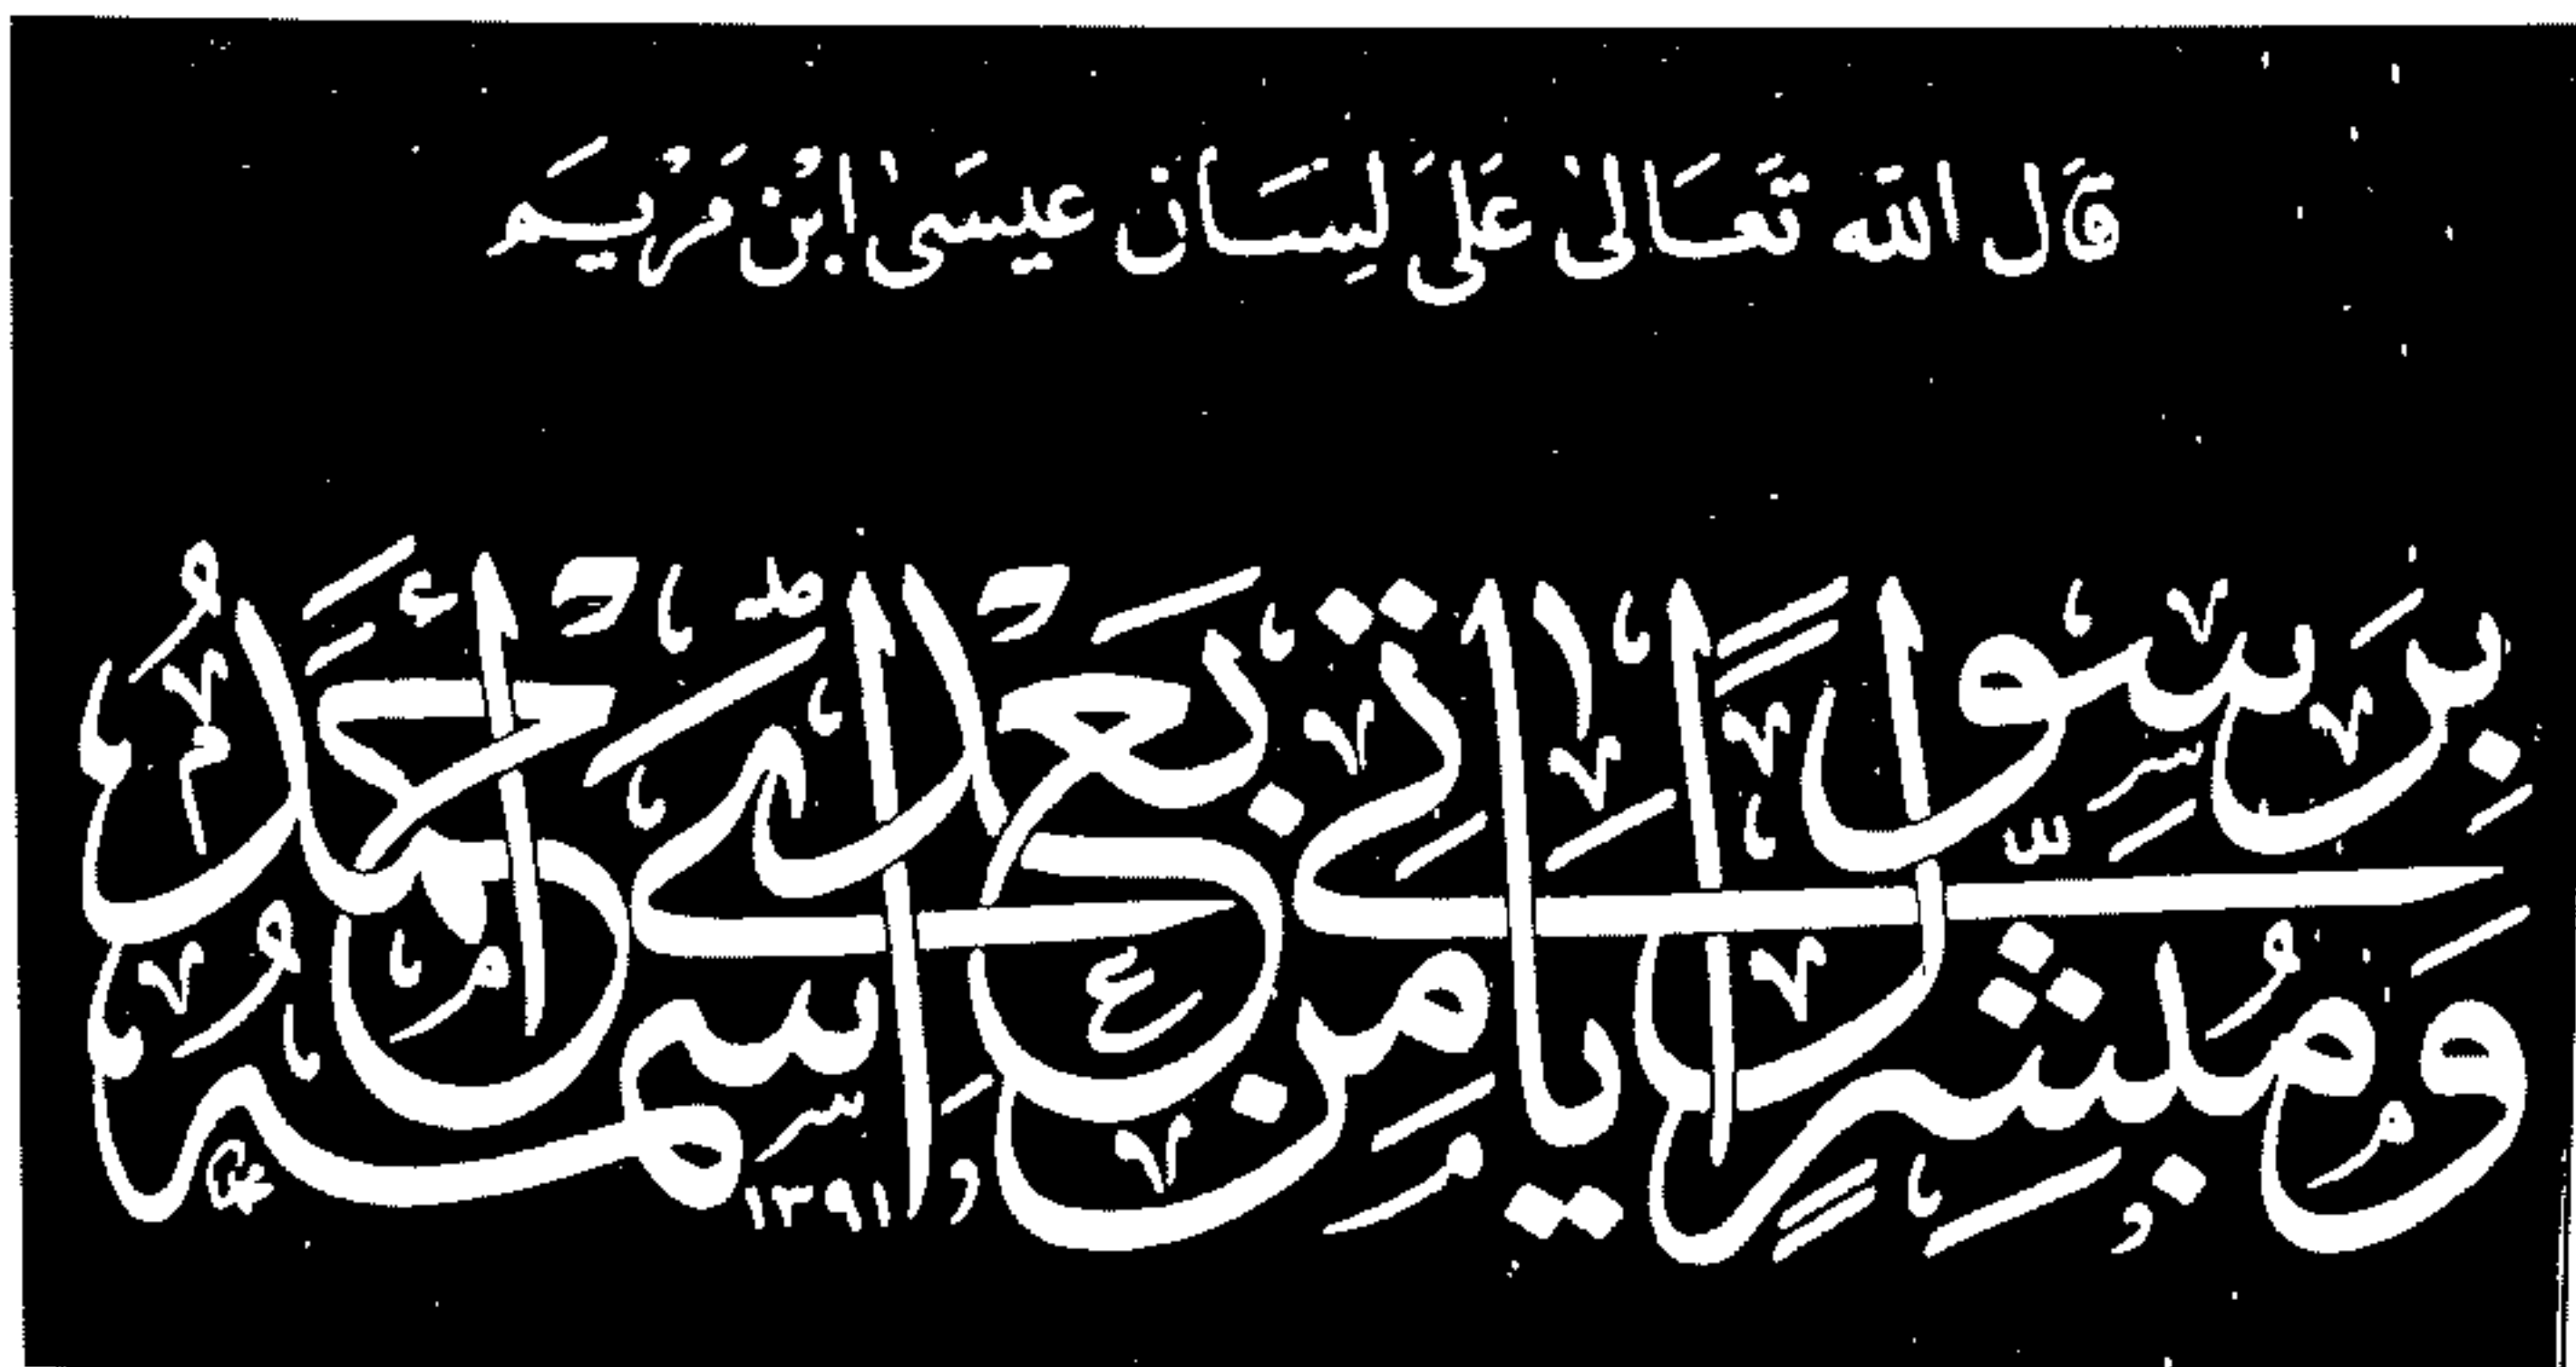 قَالَ اللّٰه تَعَالىٰ عَلَى لِسَان عِيسَىٰ ابْن مَرْيَم
وَمُبَشِّرًا بِرَسُولٍ يَأْتِي مِنْ بَعْدِي اسْمُهُ أَحْمَدُ
١٣٩١